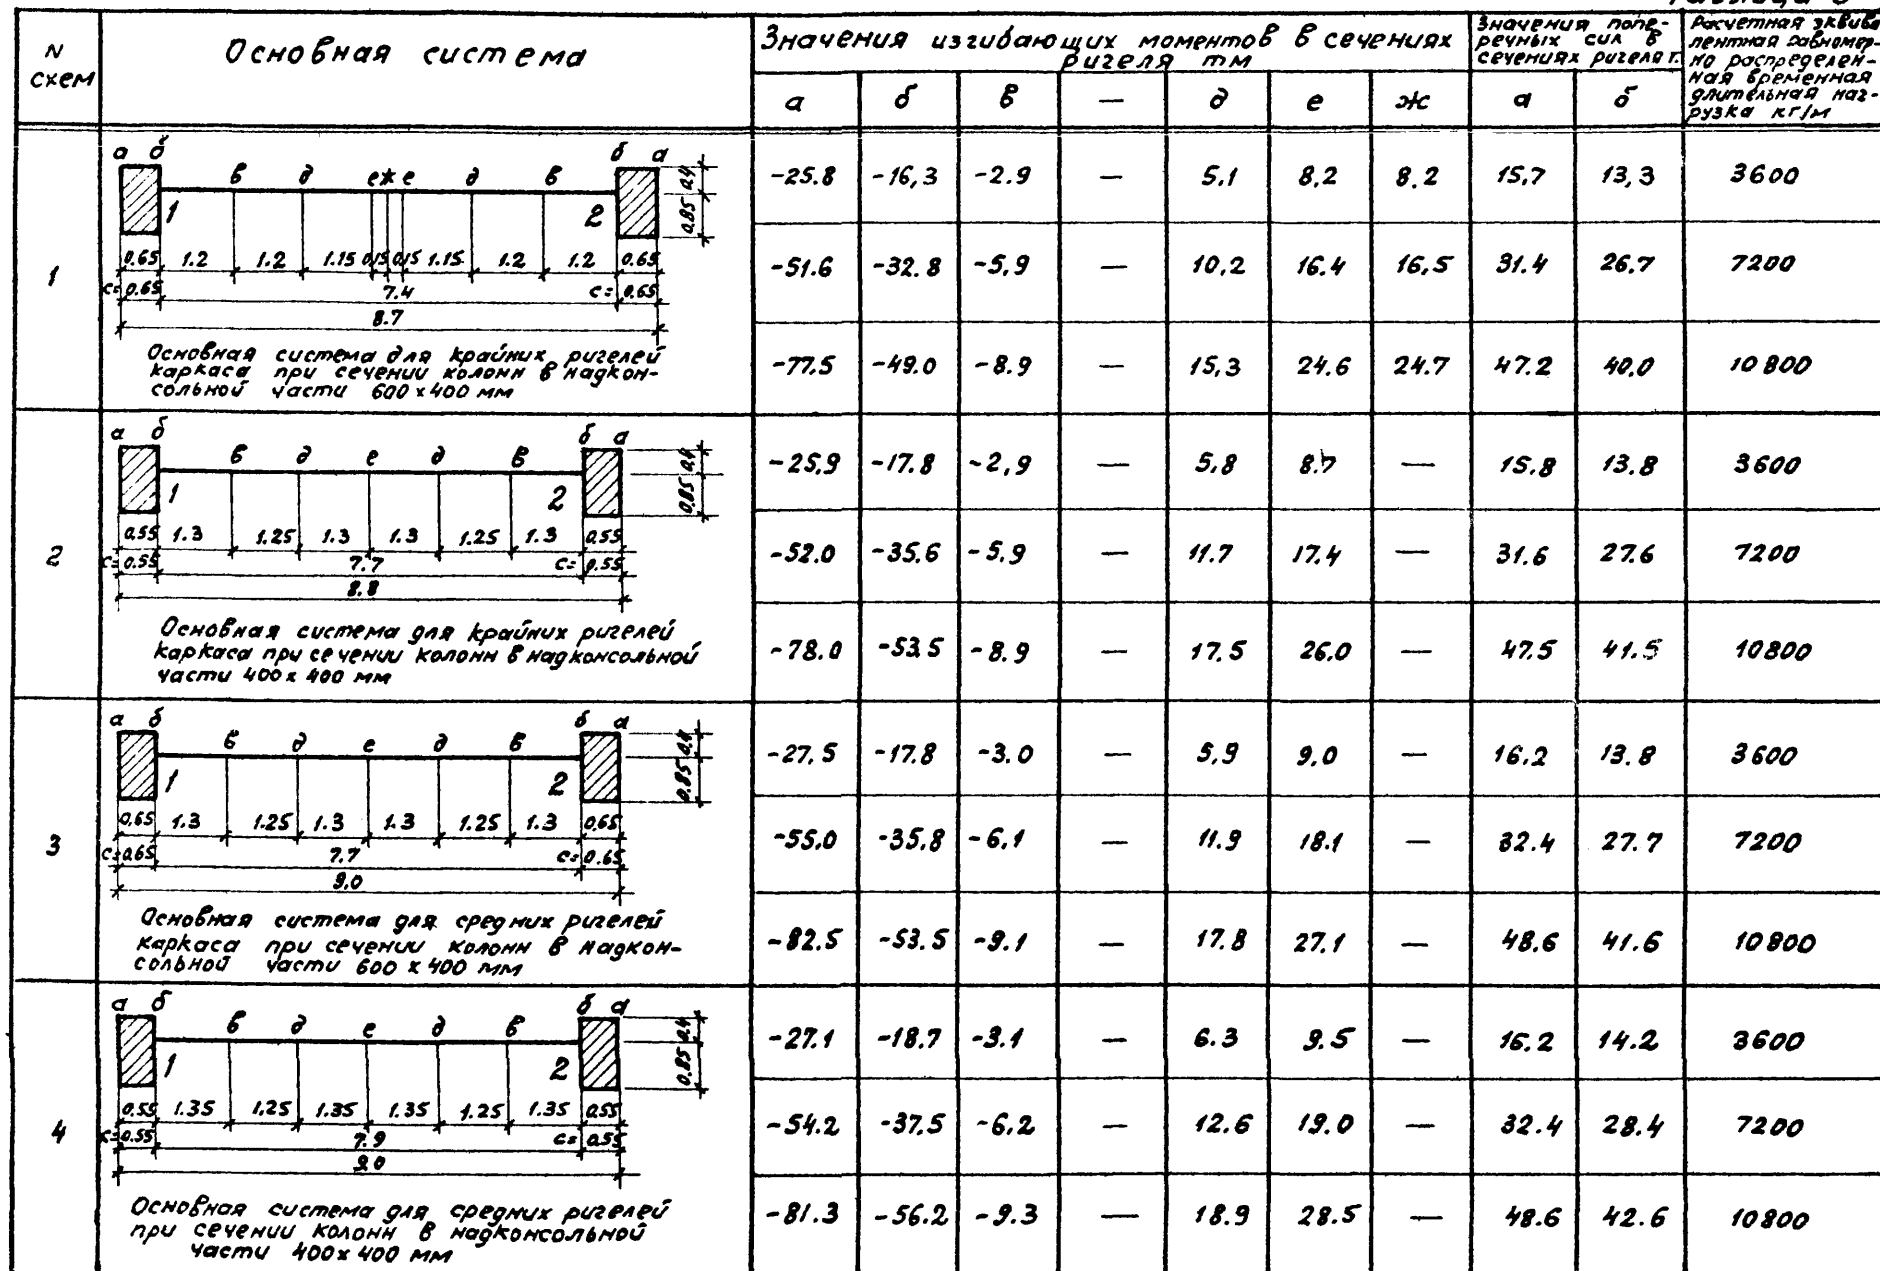 N схем
Основная система
Значения изгибающих моментов в сечениях
ригеля тм
Значения попе-
речных сил в
сечениях ригеля т.
Расчетная эквива
лентная равномер-
но распределен-
ная временная
длительная наг-
рузка кг/м
а б в — д е ж а б
1
а б в д е ж е д в б а
1 2
0.4 0.85
0.65 1.2 1.2 1.15 0.15 0.15 1.15 1.2 1.2 0.65
с= 0.65 7.4 с= 0.65
8.7
Основная система для крайних ригелей
каркаса при сечении колонн в надкон-
сольной части 600 x 400 мм
-25.8 -16,3 -2.9 — 5,1 8,2 8.2 15,7 13,3 3600
-51.6 -32.8 -5,9 — 10,2 16.4 16,5 31.4 26.7 7200
-77.5 -49.0 -8.9 — 15,3 24.6 24.7 47.2 40,0 10800
2
а б в д е д в б а
1 2
0.4 0.85
0.55 1.3 1.25 1.3 1.3 1.25 1.3 0.55
с= 0.55 7.7 с= 0.55
8.8
Основная система для крайних ригелей
каркаса при сечении колонн в надконсольной
части 400 x 400 мм
-25,9 -17.8 -2,9 — 5,8 8.7 — 15.8 13.8 3600
-52.0 -35.6 -5.9 — 11.7 17.4 — 31.6 27.6 7200
-78.0 -53.5 -8.9 — 17.5 26.0 — 47.5 41.5 10800
3
а б в д е д в б а
1 2
0.4 0.85
0,65 1.3 1.25 1.3 1.3 1.25 1.3 0,65
с= 0.65 7.7 с= 0.65
9.0
Основная система для средних ригелей
каркаса при сечении колонн в надкон-
сольной части 600 x 400 мм
-27,5 -17.8 -3.0 — 5,9 9.0 — 16.2 13.8 3600
-55.0 -35.8 -6,1 — 11.9 18.1 — 32.4 27.7 7200
-82.5 -53.5 -9.1 — 17.8 27.1 — 48.6 41.6 10800
4
а б в д е д в б а
1 2
0.4 0.85
0.55 1.35 1.25 1.35 1.35 1.25 1.35 0.55
с= 0.55 7.9 с= 0.55
9.0
Основная система для средних ригелей
при сечении колонн в надконсольной
части 400 x 400 мм
-27.1 -18.7 -3.1 — 6.3 9.5 — 16.2 14.2 3600
-54.2 -37.5 -6.2 — 12.6 19.0 — 32.4 28.4 7200
-81.3 -56.2 -9.3 — 18.9 28.5 — 48.6 42.6 10800